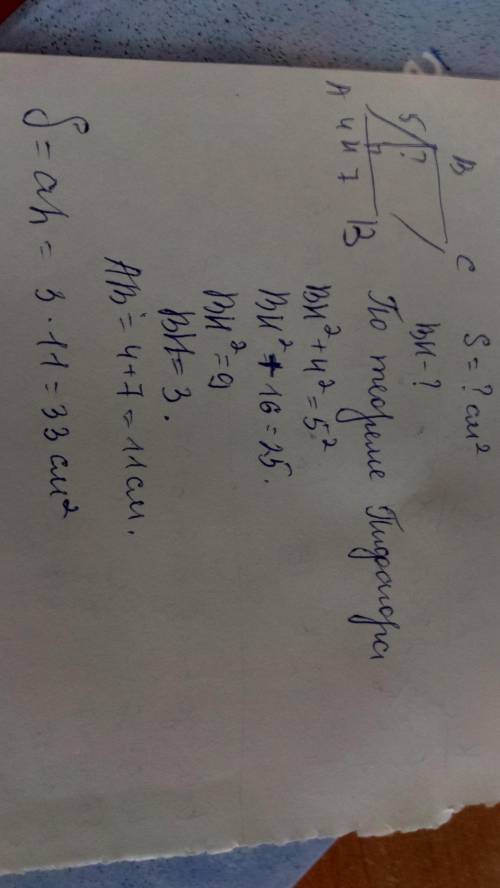 B C
5 ?
A 4 H 7 В
S = ? см²
BH - ?
По теореме Пифагора
BH² + 4² = 5²
BH² + 16 = 25.
BH² = 9
BH = 3.
AB = 4 + 7 = 11 см.
S = ah = 3 · 11 = 33 см²